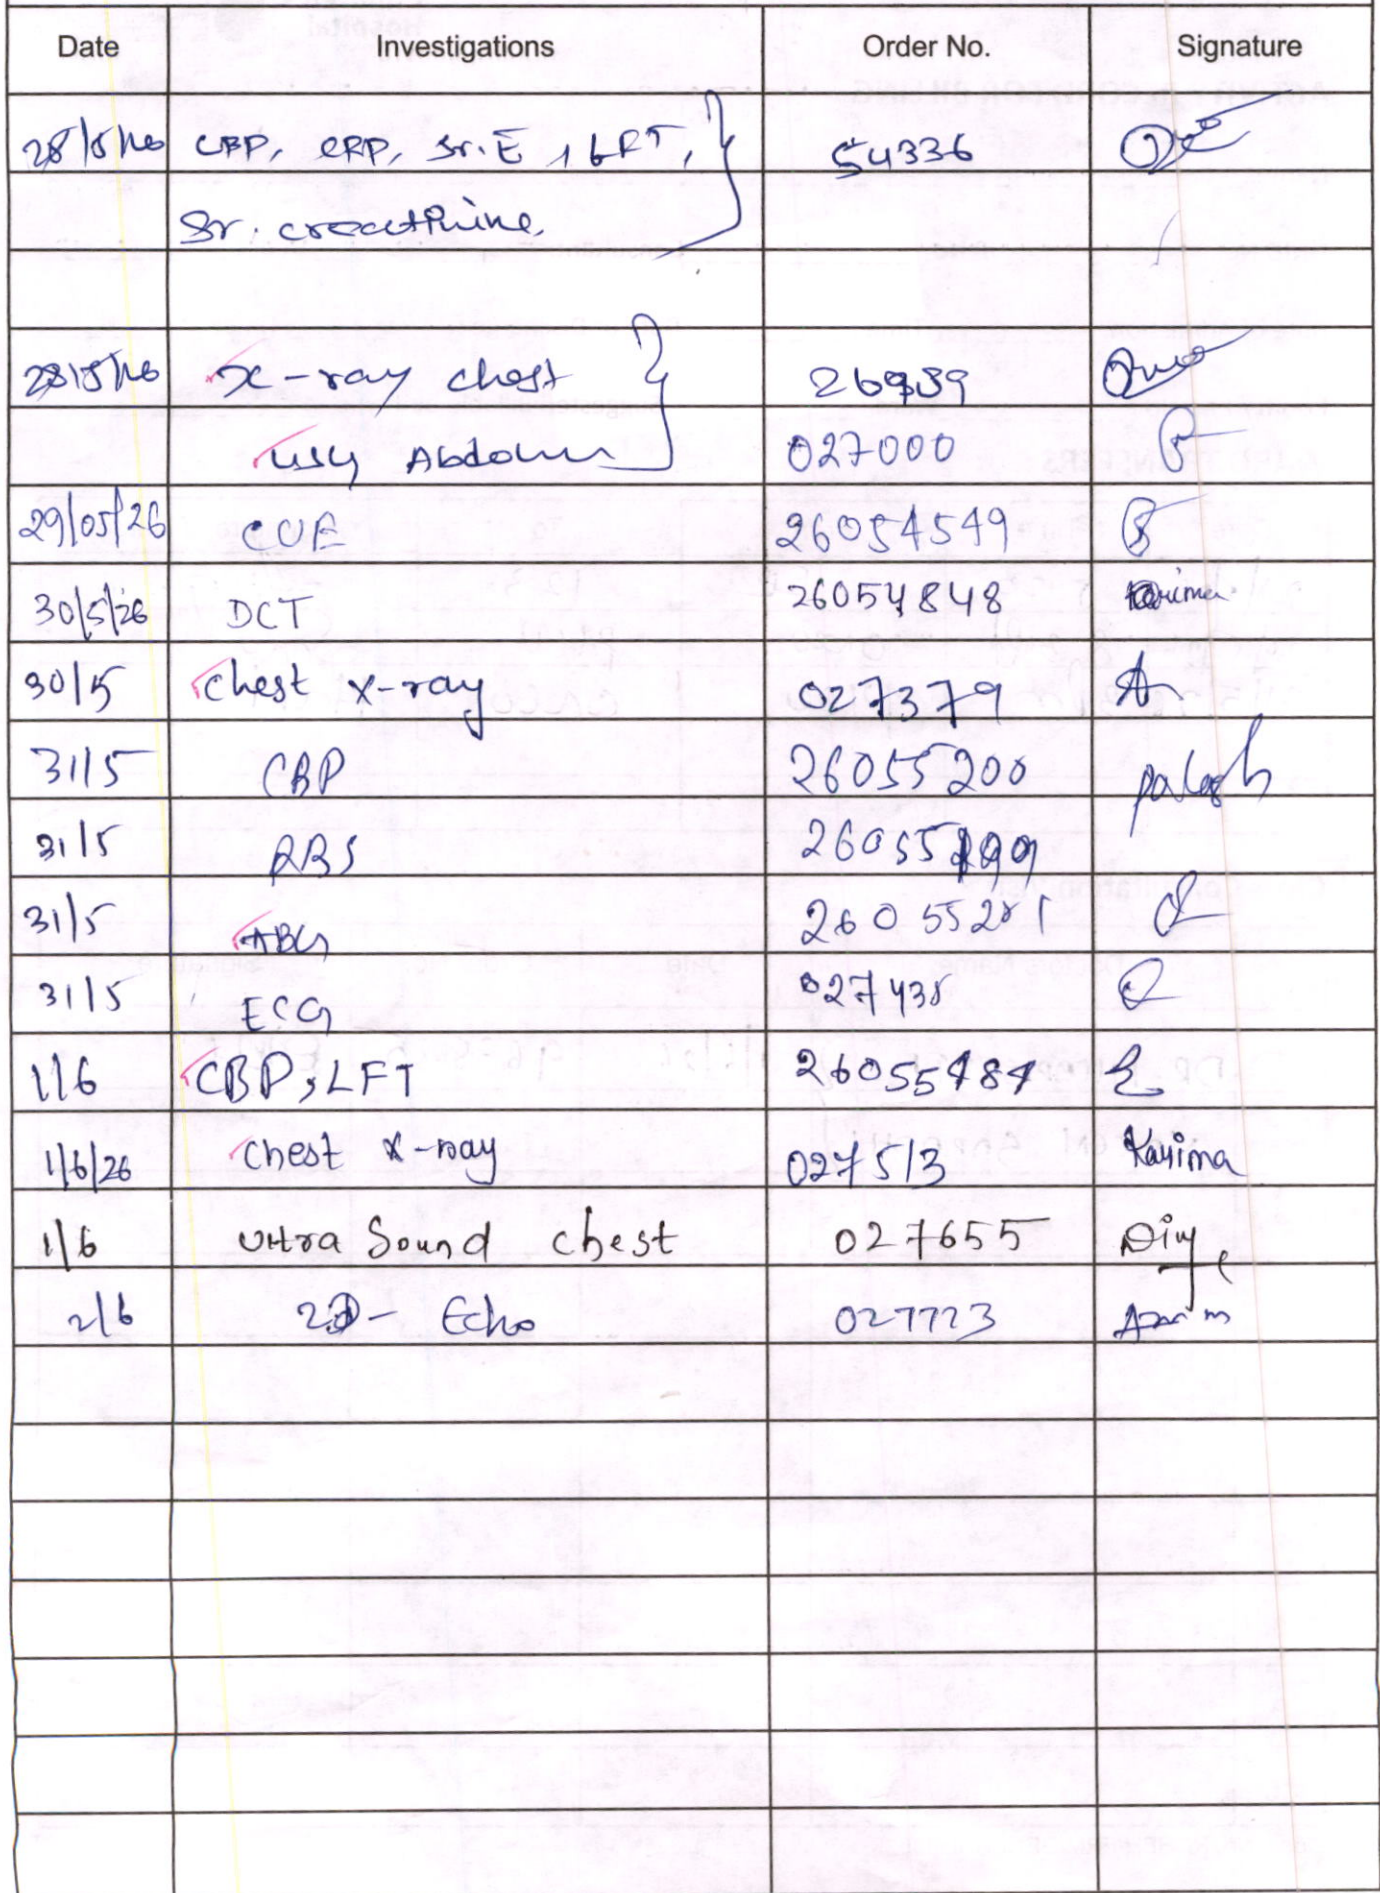 Date Investigations Order No. Signature
28/5/26 CBP, CRP, Sr. E, LFT, 54336
Sr. creactinine
28/5/26 x-ray chest 26939
usg Abdomen 027000
29/05/26 CUE 26054549
30/5/26 DCT 26054848 Karima
30/5 chest x-ray 027379
31/5 CBP 26055200 palash
31/5 RBS 26055199
31/5 ABG 26055201
31/5 ECG 027435
1/6 CBP, LFT 26055484
1/6/26 chest x-ray 027513 Karima
1/6 Ultra Sound chest 027655 Divya
2/6 2D- Echo 027723